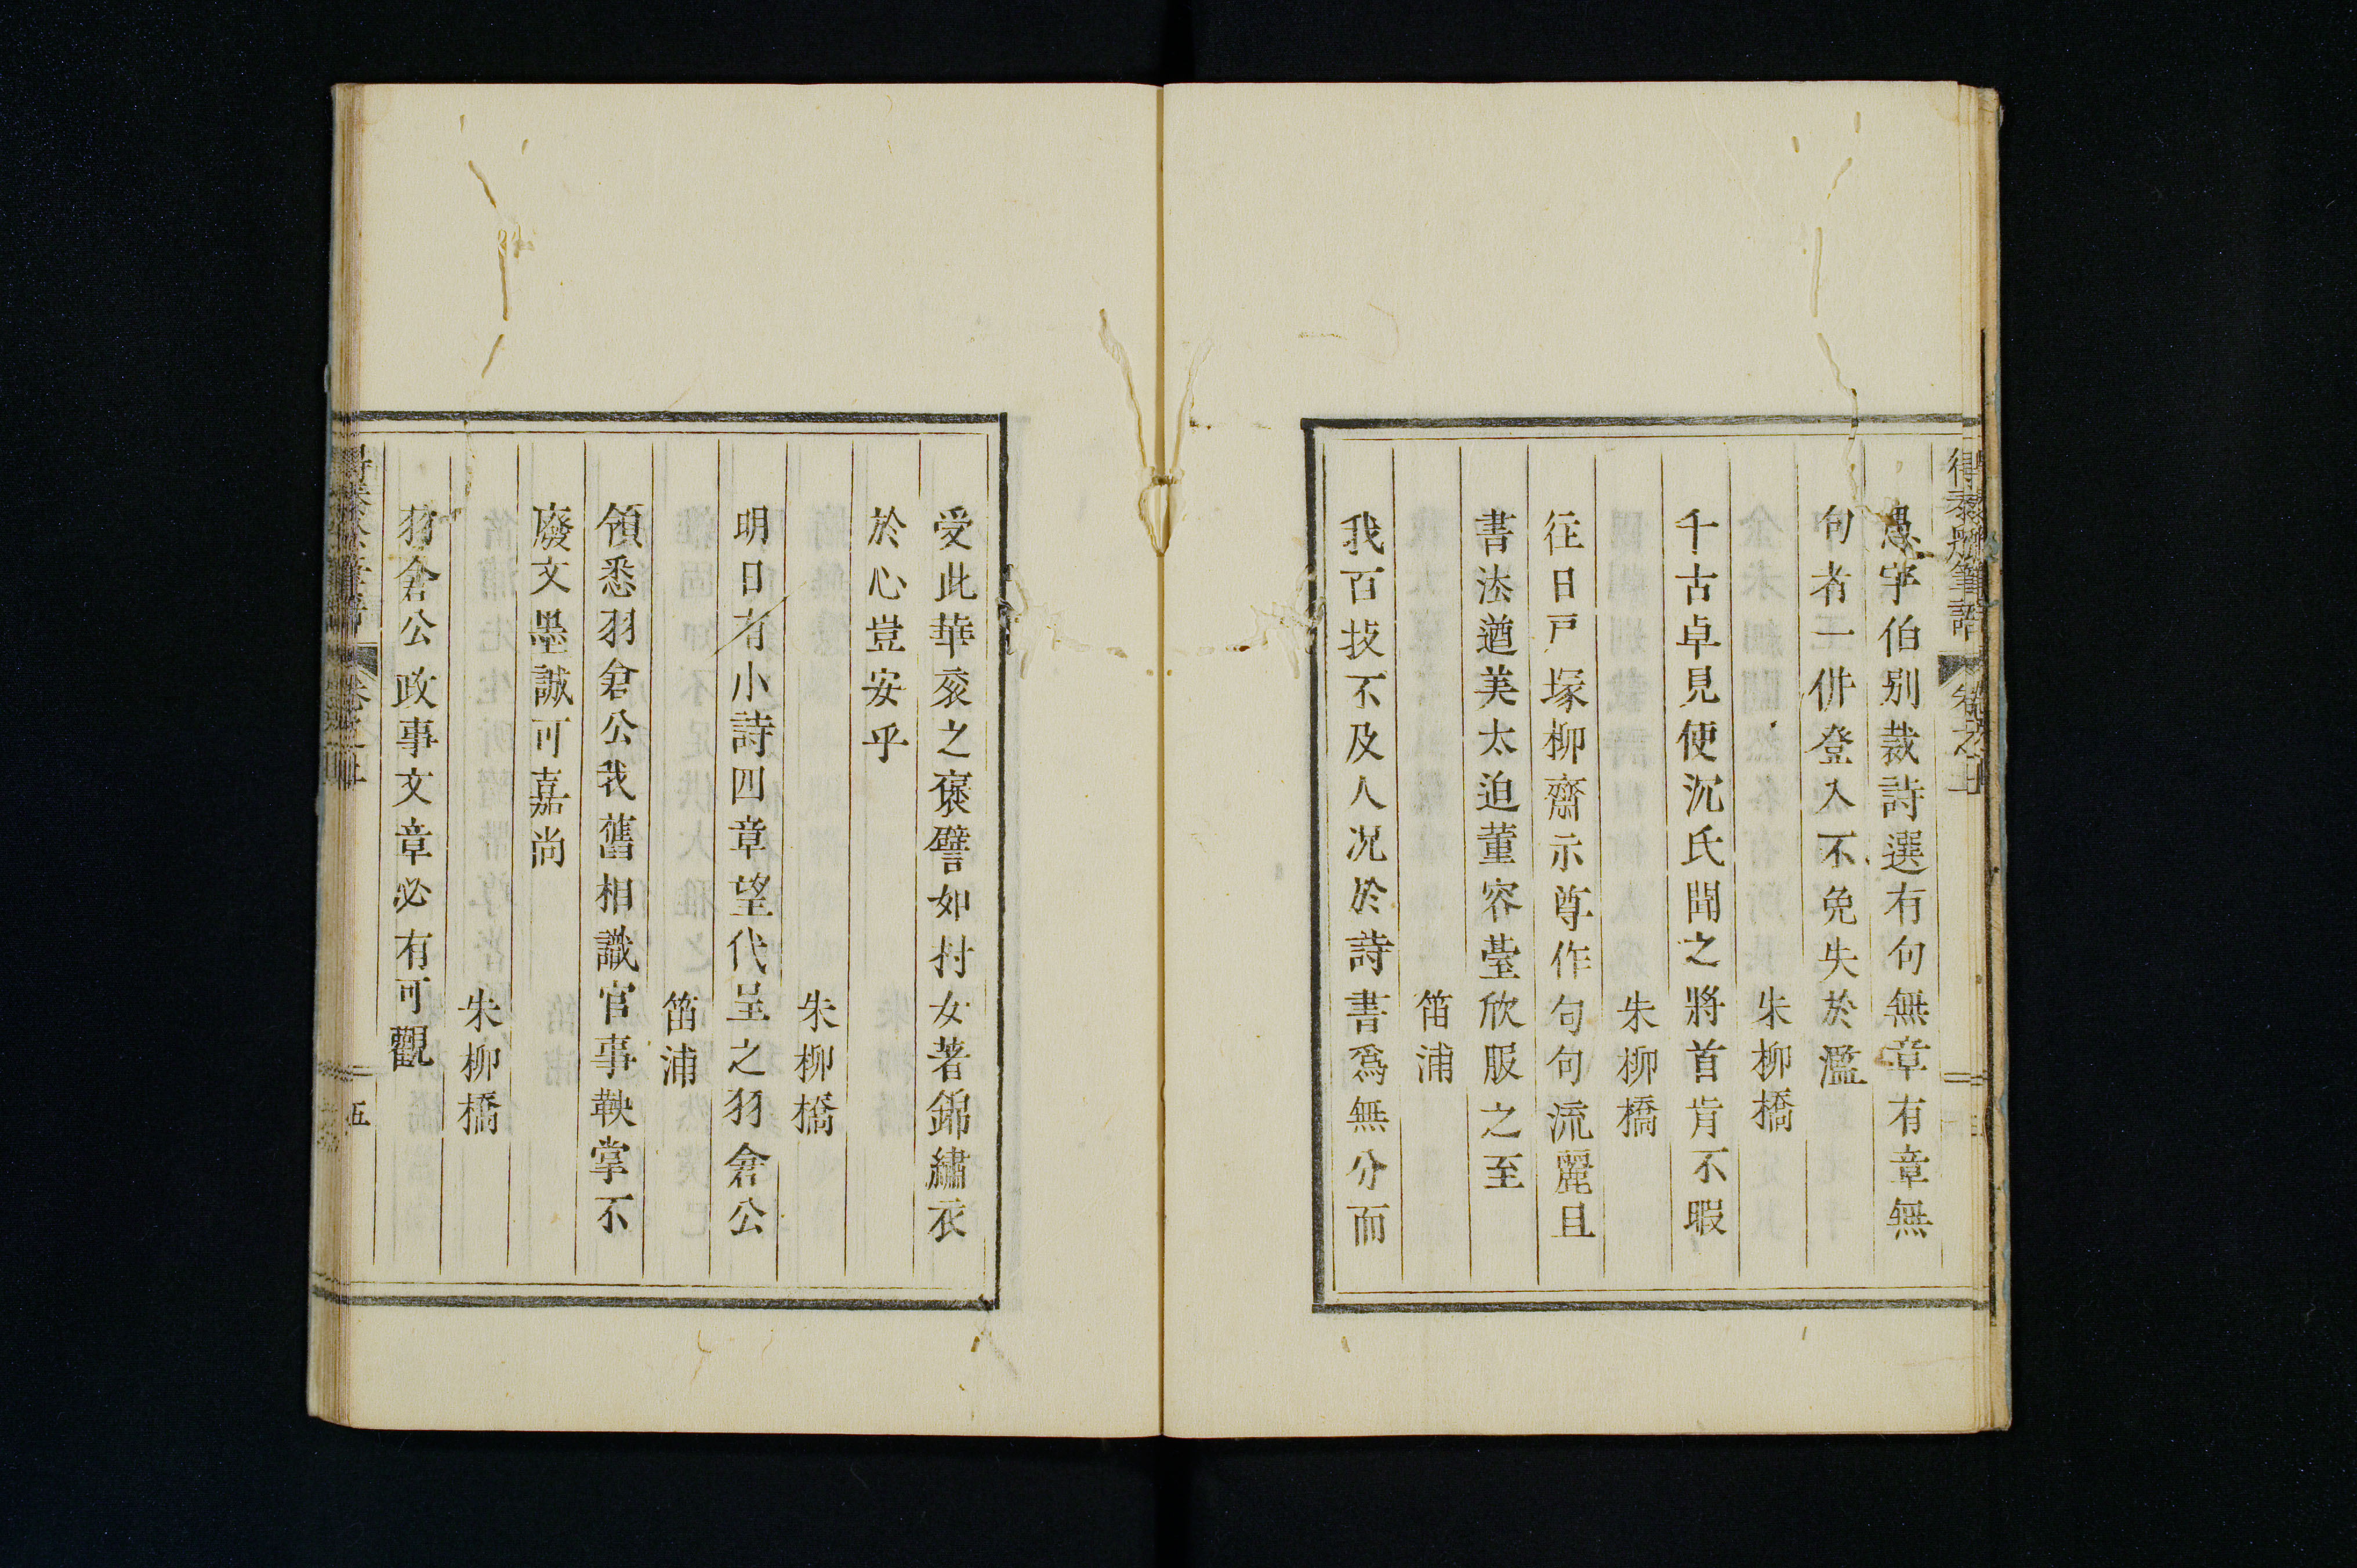 得泰船筆語
卷之上
愚案伯別裁詩選有句無章有章無
句者一併登入不免失於濫
朱柳橋
千古卓見使沉氏聞之將首肯不暇
朱柳橋
往日戸塚柳齋示尊作句句流麗且
書法遒美太迫董容臺欣服之至
笛浦
我百技不及人况於詩書爲無分而
受此華衮之襃譬如村女著錦繡衣
於心豈安乎
朱柳橋
明日有小詩四章望代呈之羽倉公
笛浦
領悉羽倉公我舊相識官事鞅掌不
廢文墨誠可嘉尚
朱柳橋
羽倉公政事文章必有可觀
五